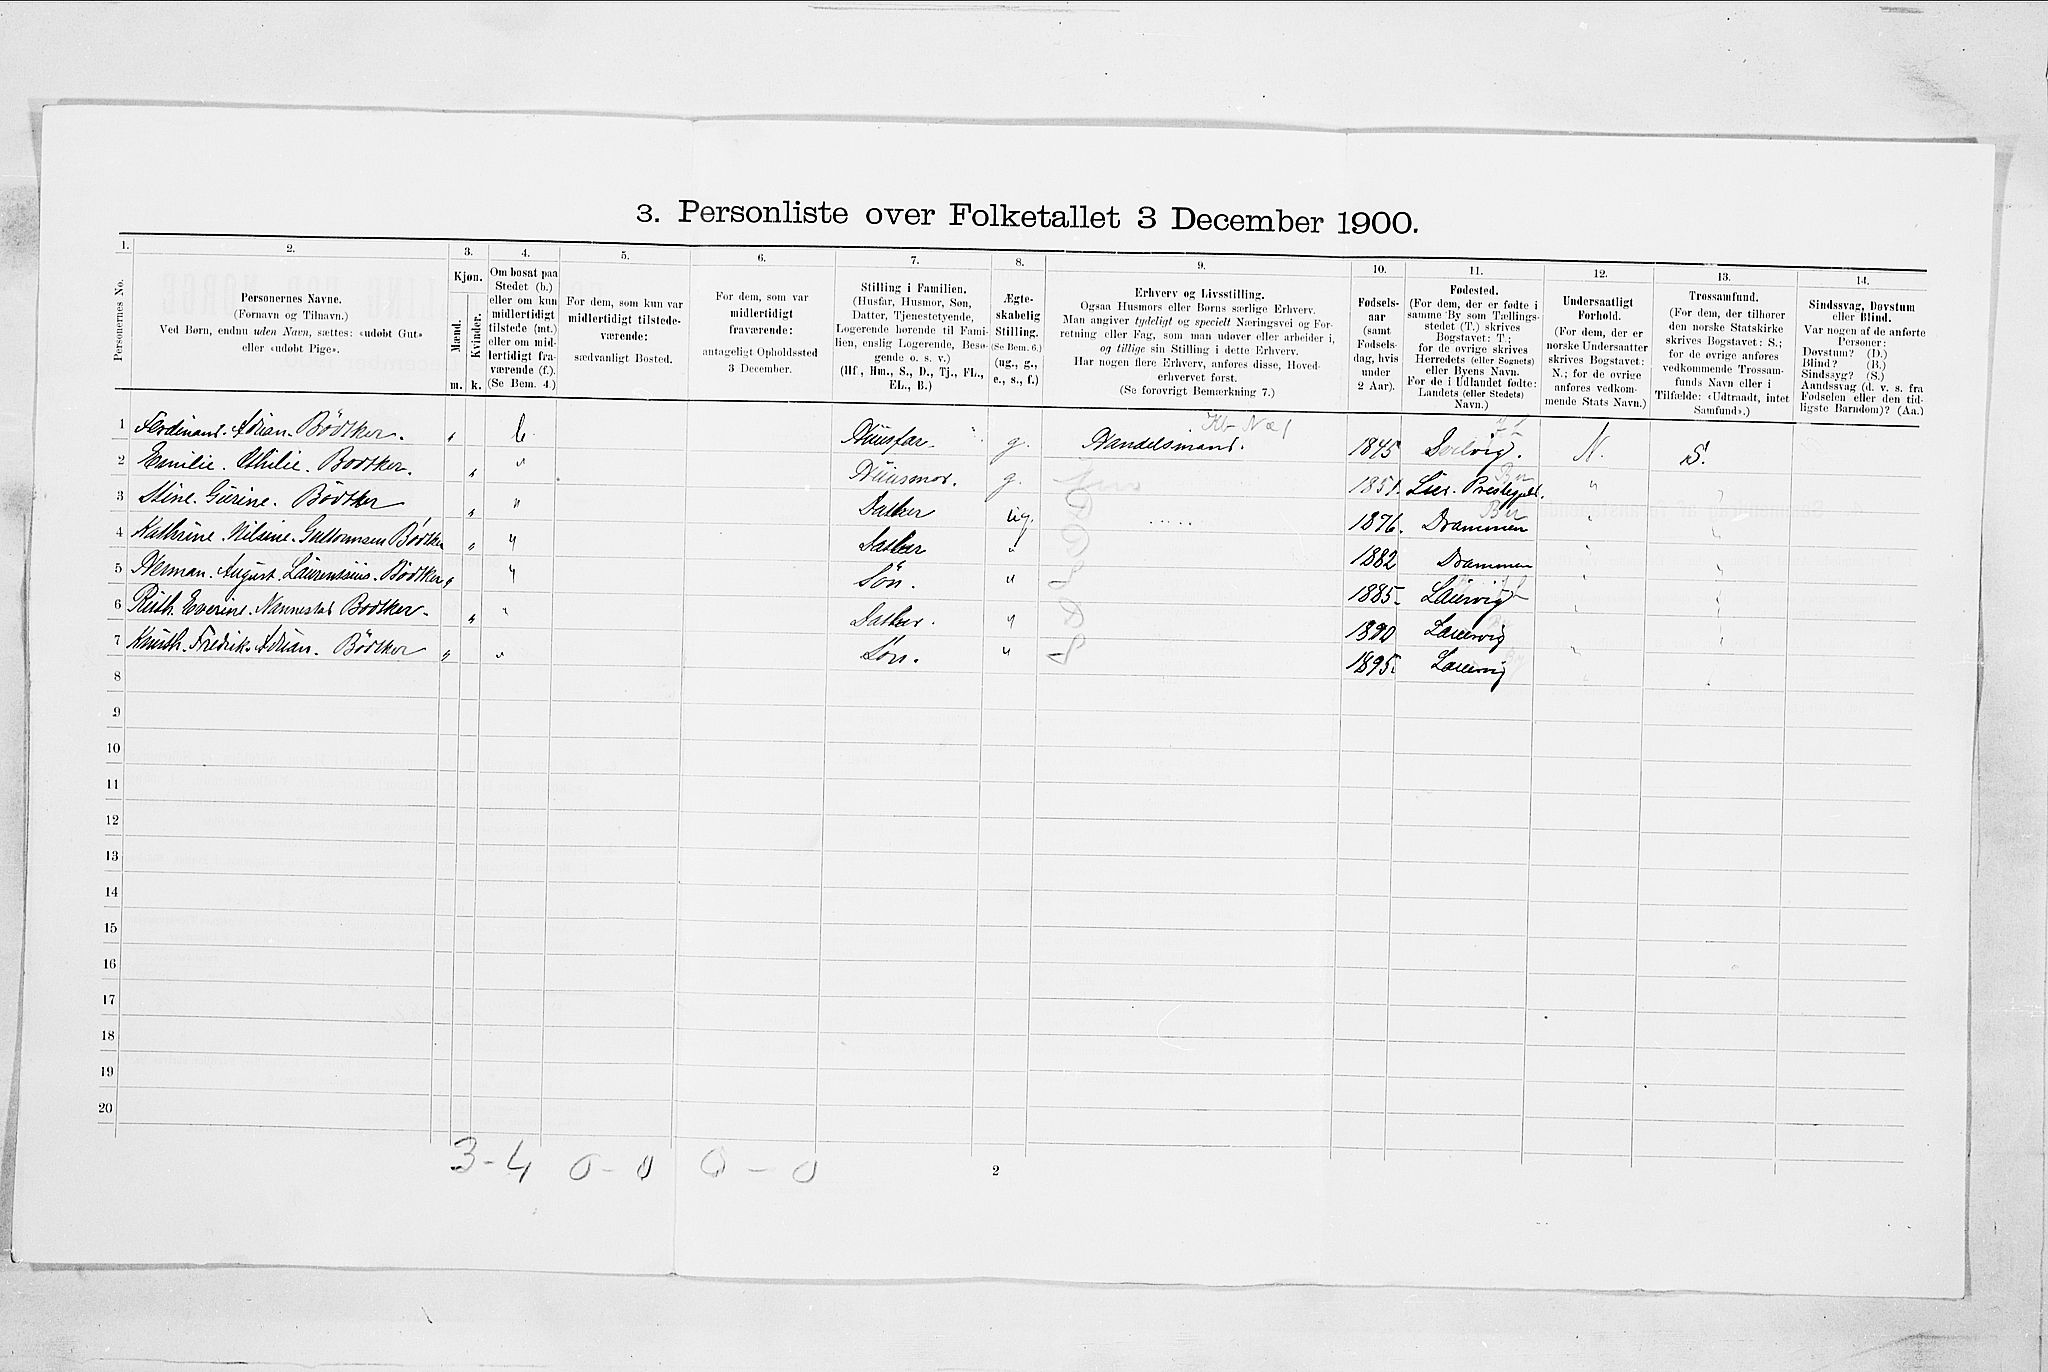 3. Personliste over Folketallet 3 December 1900.
1. 2. 3. 4. 5. 6. 7. 8. 9. 10. 11. 12. 13. 14.
Personernes No.
Personernes Navne.
(Fornavn og Tilnavn.)
Ved Børn, endnu uden Navn, sættes: «udøbt Gut»
eller «udøbt Pige».
Kjøn.
Mænd.
Kvinder.
m. k.
Om bosat paa
Stedet (b.)
eller om kun
midlertidigt
tilstede (mt.)
eller om mid-
lertidigt fra-
værende (f.).
(Se Bem. 4.)
For dem, som kun var
midlertidigt tilstede-
værende:
sædvanligt Bosted.
For dem, som var
midlertidigt
fraværende:
antageligt Opholdssted
3 December.
Stilling i Familien.
(Husfar, Husmor, Søn,
Datter, Tjenestetyende,
Logerende hørende til Fami-
lien, enslig Logerende, Besø-
gende o. s. v.)
(Hf., Hm., S., D., Tj., FL.,
EL., B.)
Ægte-
skabelig
Stilling.
(Se Bem. 6.)
(ug., g.,
e., s., f.)
Erhverv og Livsstilling.
Ogsaa Husmors eller Børns særlige Erhverv.
Man angiver tydeligt og specielt Næringsvei og For-
retning eller Fag, som man udøver eller arbeider i,
og tillige sin Stilling i dette Erhverv.
Har nogen flere Erhverv, anføres disse, Hoved-
erhvervet først.
(Se forøvrigt Bemærkning 7.)
Fødsels-
aar
(samt
Fødsels-
dag, hvis
under
2 Aar).
Fødested.
(For dem, der er fødte i
samme By som Tællings-
stedet (T.) skrives
Bogstavet: T.;
for de øvrige skrives
Herredets (eller Sognets)
eller Byens Navn.
For de i Udlandet fødte:
Landets (eller Stedets)
Navn.)
Undersaatligt
Forhold.
(For dem, der er
norske Undersaatter
skrives Bogstavet:
N.; for de øvrige
anføres vedkom-
mende Stats Navn.)
Trossamfund.
(For dem, der tilhører
den norske Statskirke
skrives Bogstavet: S.;
for de øvrige anføres
vedkommende Trossam-
funds Navn eller i
Tilfælde: «Udtraadt, intet
Samfund».)
Sindssvag, Døvstum
eller Blind.
Var nogen af de anførte
Personer:
Døvstum? (D.)
Blind? (B.)
Sindssyg? (S.)
Aandssvag (d. v. s. fra
Fødselen eller den tid-
ligste Barndom)? (Aa.)
1 Ferdinand. Adrian. Bödtker. " b Huusfar. g. Handelsmand. 1845 N. S.
2 Emilie. Othilie. Bödtker. " " Huusmor. g. 1851. Lier. Prestegjeld. " "
3 Stine. Gurine. Bödtker " " Datter ug. 1876. Drammen " "
4 Kathrine. Nilsine. Guttormsen Bödtker " " Datter " 1882 Drammen " "
5 Herman. August. Laurentsius. Bödtker " " Sön. " 1885. Laurvig " "
6 Ruth. Everine. Nannestad Bödtker. " " Datter. " 1890 Laurvig " "
7 Knuth. Fredrik. Adrian. Bödtker " " Sön. " 1895. Laurvig " "
8
9
10
11
12
13
14
15
16
17
18
19
20
3-4 0-0 0-0
2